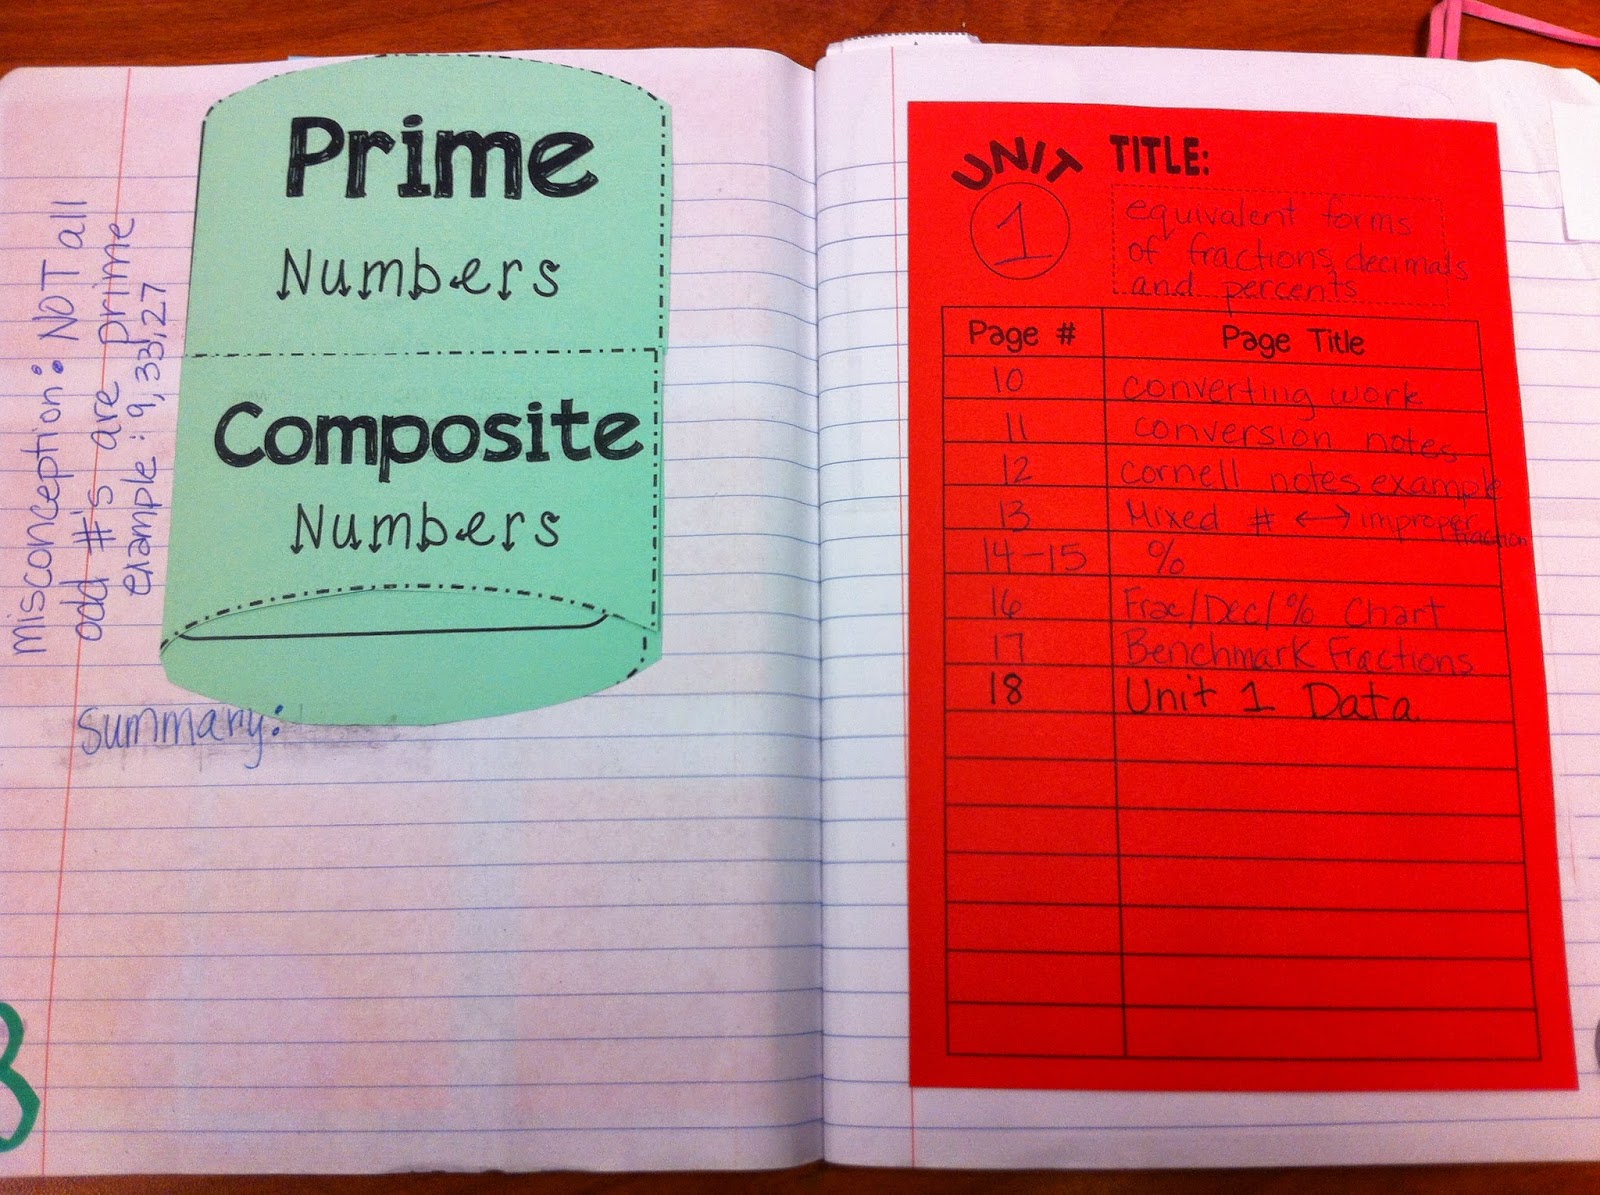 misconception: NOT all
odd #'s are prime
example: 9, 33, 27
Prime
Numbers
Composite
Numbers
Summary:
UNIT
1
TITLE:
equivalent forms
of fractions, decimals
and percents
Page # Page Title
10 converting work
11 conversion notes
12 cornell notes example
13 Mixed # ↔ improper
fraction
14-15 %
16 Frac/Dec/% Chart
17 Benchmark Fractions
18 Unit 1 Data